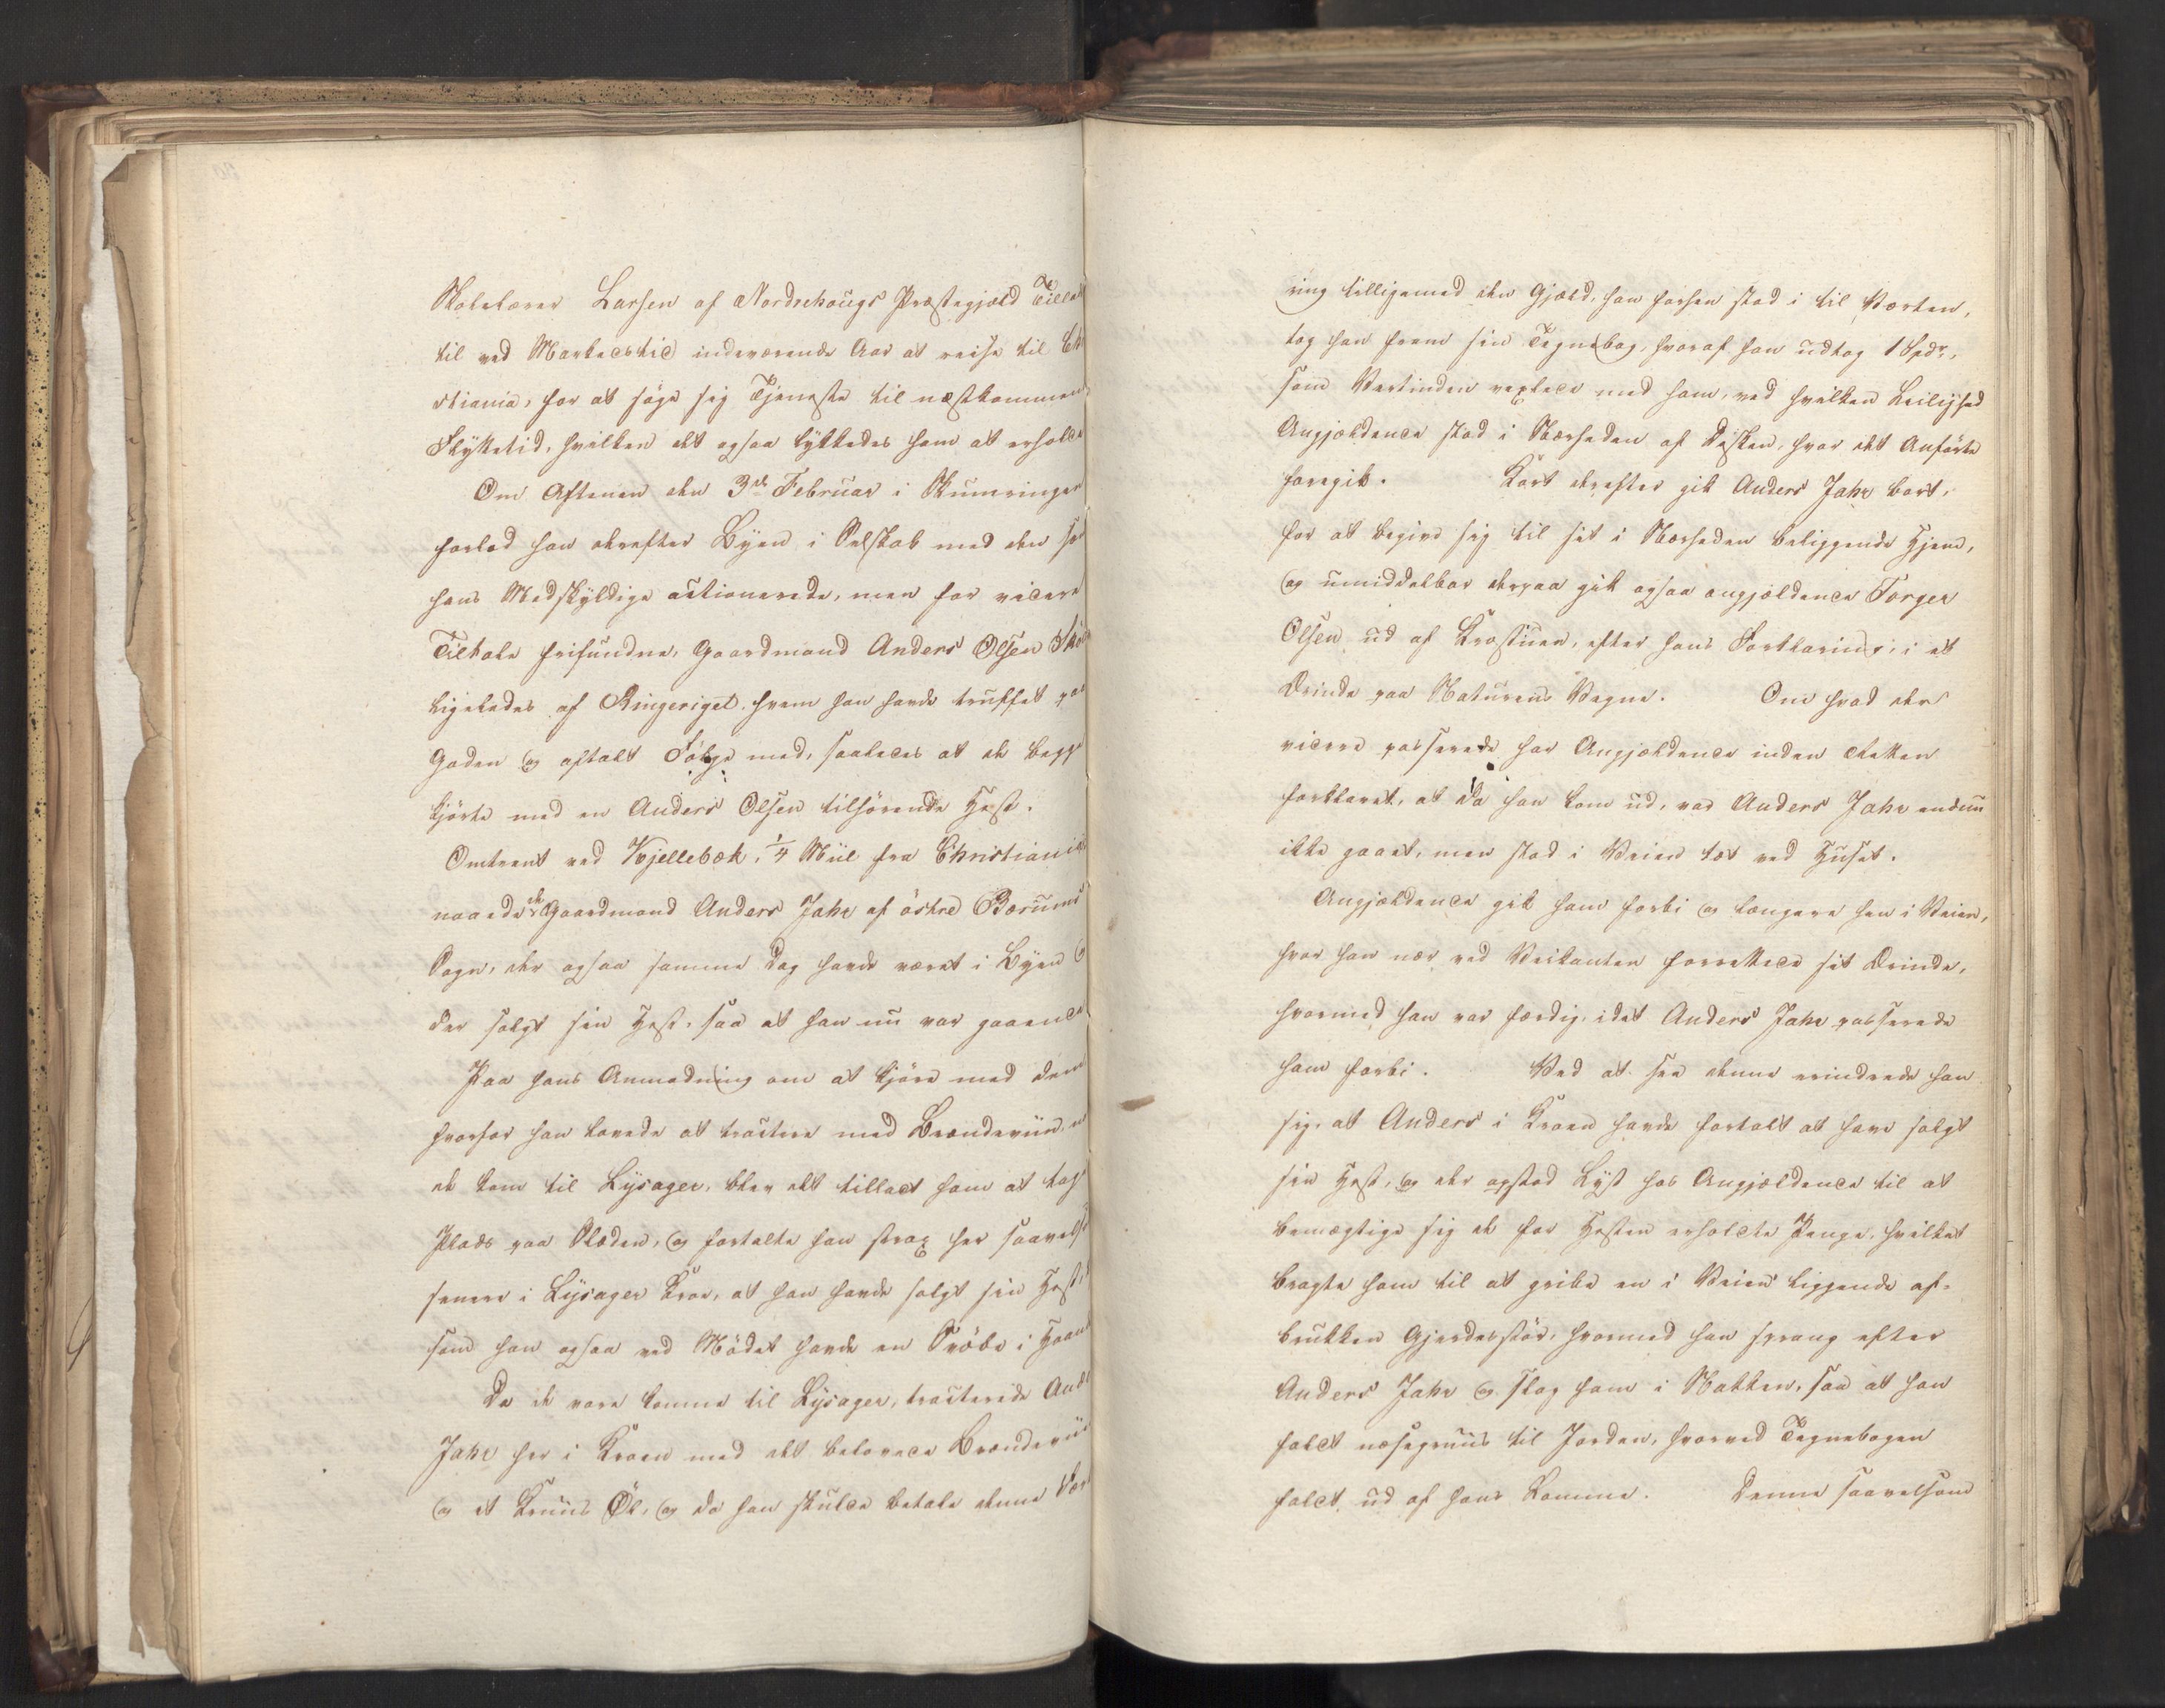 Skolelærer Larsen af Nordrehougs Præstegjæld Tillad
til ved Markedstid indeværende Aar at reise til Chr
stiania, for at søge sig Tjeneste til næstkommen
Flyttetid, hvilken det ogsaa lykkedes ham at erholde
Om Aftenen den 3die Februar i Skumringen
forlod han derefter Byen i Selskab med den so
hans Medskyldige actionerede, men for videre
Tiltale frifundne, Gaardmand Anders Olsen
ligeledes af Ringeriget, hvem han havde truffet paa
Gaden og aftalt Følge med, saaledes at de begge
kjørte med en Anders Olsen tilhørende Hest.
Omtrent ved Kjellebæk, 1/4 Miil fra Christiania
naaede de Gaardmand Anders Jahr af østre Bærums
Sogn, der ogsaa samme Dag havde været i Byen og
der solgt sin Hest, saa at han nu var gaaende
Paa hans Anmodning om at kjøre med dem
hvorfor han lovede at tractere med Brændeviin, n
de kom til Lysager, blev det tilladt ham at tage
Plads paa Slæden, og fortalte han strax her saavelso
senere i Lysager Kroe, at han havde solgt sin Hest,
som han ogsaa ved Mødet havde en Svøbe i Haand
Da de vare komne til Lysager, tracterede Ande
Jahr her i Kroen med det belovede Brændeviin
og et Kruus Øl, og da han skulde betale denne Tær
ring tilligemed den Gjæld, han forhen stod i til Værten,
tog han frem sin Tegnebog, hvoraf han udtog 1 Spdr.,
som Vertinden vexlede med ham, ved hvilken Leilighed
Angjældende stod i Nærheden af Disken, hvor det Anførte
foregik. Kort derefter gik Anders Jahr bort,
for at begive sig til sit i Nærheden beliggende Hjem,
og umiddelbar derpaa gik ogsaa angjældende Torger
Olsen ud af Krostuen, efter hans Forklaring, i et
Ærinde paa Naturens Vegne. Om hvad der
videre passerede har Angjældende inden Retten
forklaret, at da han kom ud, var Anders Jahr endnu
ikke gaaet, men stod i Veien tæt ved Huset.
Angjældende gik ham forbi og længere hen i Veien,
hvor han nær ved Veikanten forrettede sit Ærinde,
hvormed han var færdig, idet Anders Jahr passerede
ham forbi. Ved at see denne erindrede han
sig, at Anders i Kroen havde fortalt at have solgt
sin Hest, og der opstod Lyst hos Angjældende til at
bemægtige sig de for Hesten erholdte Penge, hvilket
bragte ham til at gribe en i Veien liggende af-
brukken Gjerdesstør, hvormed han sprang efter
Anders Jahr og slog ham i Nakken, saa at han
faldt næsegruus til Jorden, hvorved Tegnebogen
faldt ud af hans Lomme. Denne saavelsom